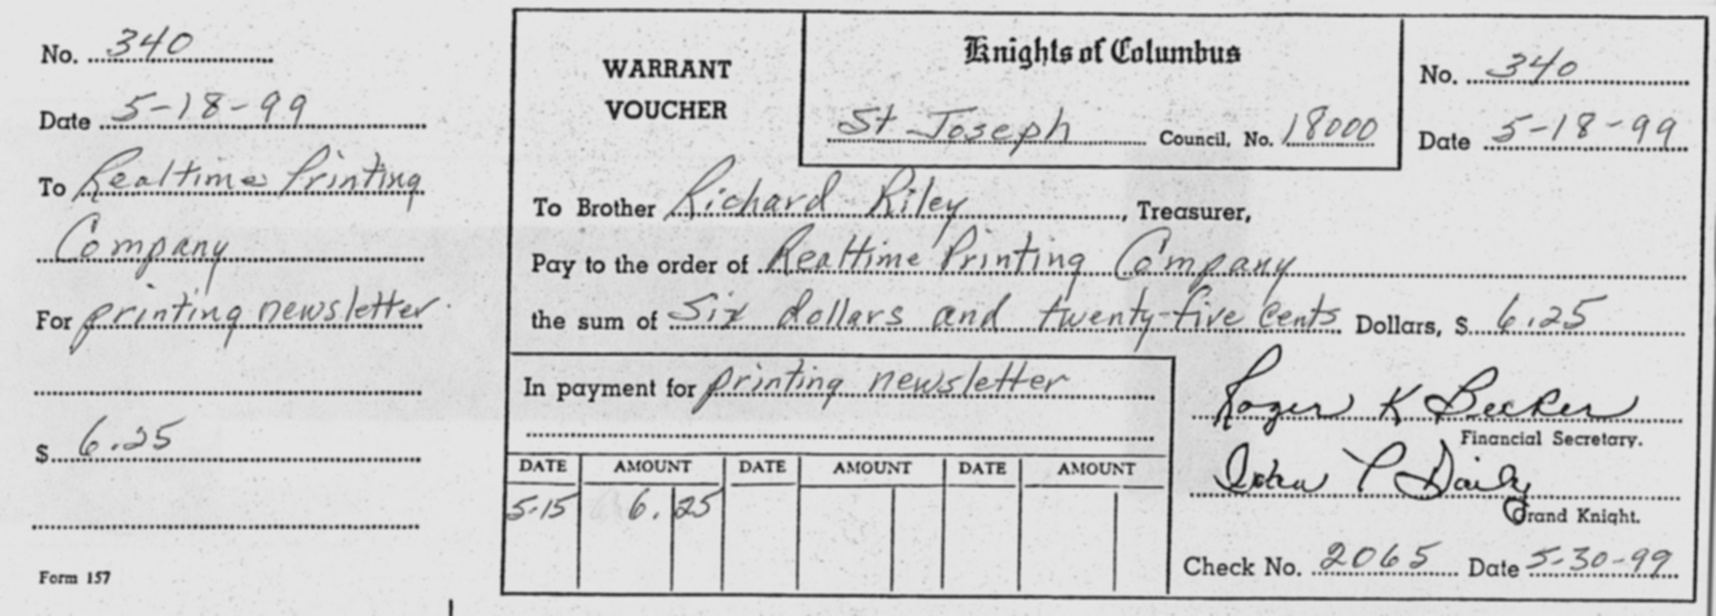 No. 340
Date 5-18-99
To Realtime Printing
Company
For printing newsletter
$ 6.25
Form 157
WARRANT
VOUCHER
Knights of Columbus
St Joseph Council, No. 18000
No. 340
Date 5-18-99
To Brother Richard Riley, Treasurer,
Pay to the order of Realtime Printing Company
the sum of Six dollars and twenty-five cents Dollars, $ 6.25
In payment for printing newsletter
DATE AMOUNT DATE AMOUNT DATE AMOUNT
5-15 6.25
Roger K Becker
Financial Secretary.
John P Daily
Grand Knight.
Check No. 2065 Date 5-30-99